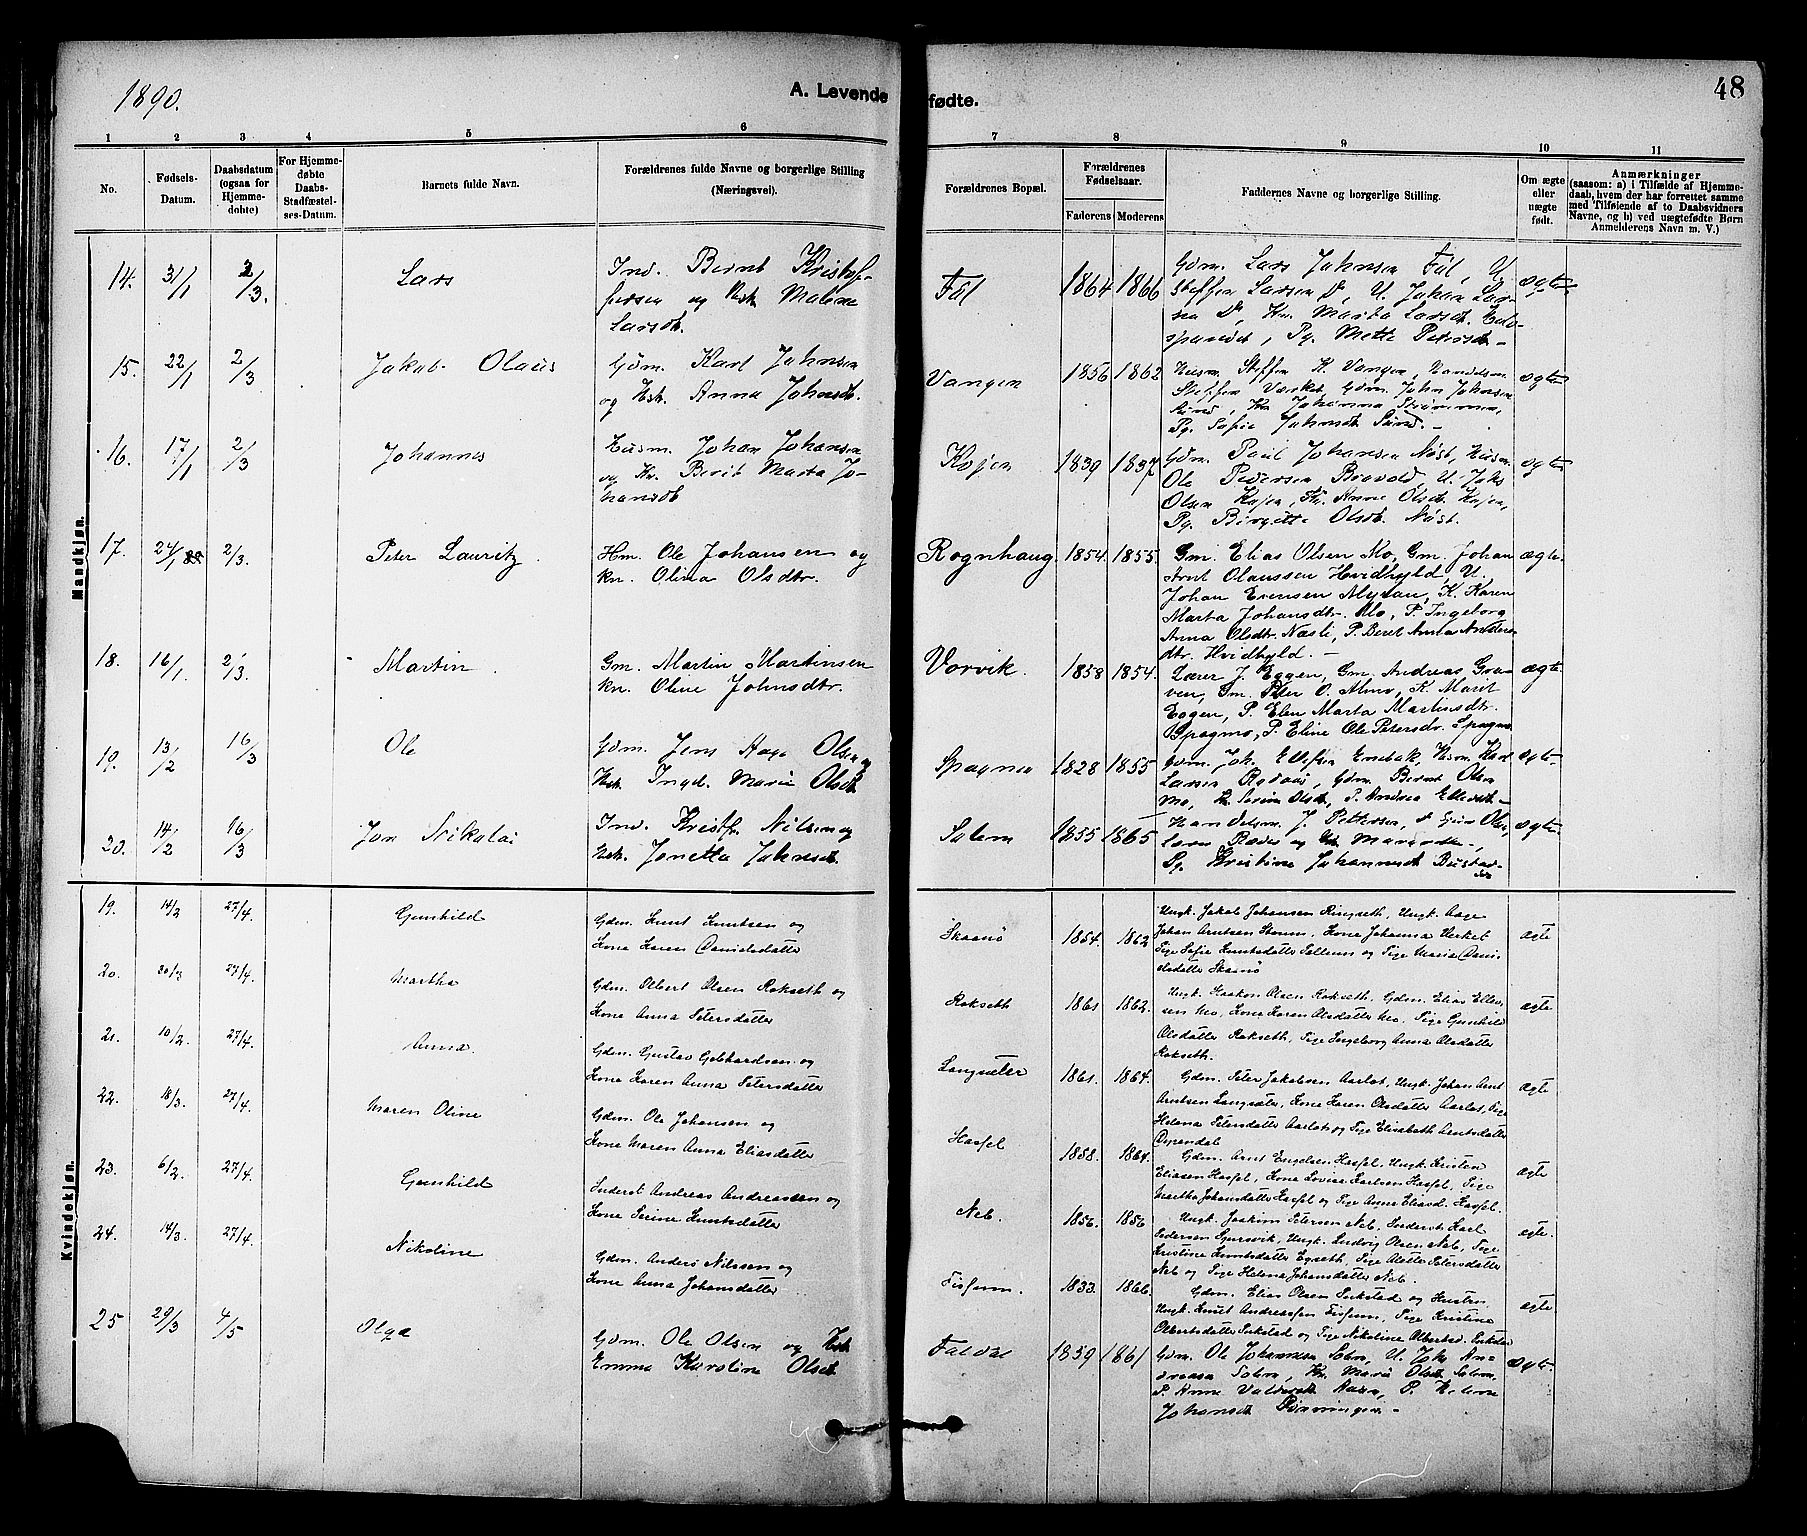 1890.
A. Levende fødte.
48
1 2 3 4 5 6 7 8 9 10 11
No.
Fødsels-Datum.
Daabsdatum (ogsaa for Hjemme-døbte)
For Hjemme-døbte Daabs-Stadfæstel-ses-Datum.
Barnets fulde Navn.
Forældrenes fulde Navne og borgerlige Stilling (Næringsvei).
Forældrenes Bopæl.
Forældrenes Fødselsaar.
Faderens Moderens
Faddernes Navne og borgerlige Stilling.
Om ægte eller uægte født.
Anmærkninger
(saasom: a) i Tilfælde af Hjemme-
daab, hvem der har forrettet samme
med Tilføiende af to Daabsvidners
Navne, og b) ved uægtefødte Børn
Anmelderens Navn m. V.)
Mandkjøn.
14. 31/1 2/3. Lars
Ind. Bernt Kristof-
fersen og Hst. Malena
Larsdt.
Fál 1864 1866
Gdm. Lars Johnsen Fál, U.
Steffen Larsen Do, U. Johan Lar-
sen Do, Kn. Marta Larsdt.
Pg. Mette Petersdt.
ægte
15. 22/1 2/3 Jakob Olaus
Gdm. Karl Johnsen
og Hst. Anna Johnsdt.
Vangen 1856 1862
Husm. Steffen K. Vangen, Handelsm.
Steffen Værket, Gdm. John Johnsen
Sund, Kn Johanna Strømmen,
Pg. Sofie Johnsdt Sund.
ægte
16. 17/1 2/3 Johannes
Husm. Johan Johansen
og Kn. Berit Marta Jo-
hansdt
Kojen 1839 1837
Gdm. Paul Johansen Nøst, Husm.
Ole Pedersen Brovold, U. Johs
Olsen Kojen, Kn. Anne Olsdt. Kojen,
Pg. Birgitte Olsdt. Nøst.
ægte
17. 24/1 89 2/3. Peter Lauritz.
Hm. Ole Johansen og
kn. Olina Olsdtr.
Rognhaug. 1854. 1855.
Gm. Elias Olsen Mo, Gm. Johan
Arnt Olaussen Hvidhyld, U.
Johan Evensen Myran, K. Karen
Marta Johansdtr. Mo, P. Ingeborg
Anna Olsdtr. Næsli, P. Beret Anna Anders-
dtr. Hvidhyld.
ægte.
18. 16/1. 2/3. Martin.
Gm. Martin Martinsen
kn. Oline Johnsdtr.
Vorvik. 1858 1854.
Lærer J. Eggen, Gm. Andreas Gra-
ven, Gm. Peter O. Almo, K. Marit
Eggen, P. Elen Marta Martinsdtr.
Spagmo, P. Eline Ole Petersdr. Spagmo
ægte.
19. 13/2 16/3 Ole
Gdm. Jens Aage Olsen og
Hst. Ingb. Marie Olsdt
Spagmo 1828 1855
Gdm. Joh. Ellefsen Husm. Karl
Larsen Gdm. Bernt Olsen
Mo, Kn Serine Olsdt, P. Andrea Ellevsdt
ægte
20. 14/2 16/3 Jon Nikolai
Ind. Kristf. Nilsen og
Hst. Jonetta Johnsdt.
Salem 1855 1865
Handelsm. J. Pettersen,
Pg. Kristine Johannesdt
ægte
Kvindekjøn.
19. 14/2 27/4. Gunhild
Gdm. Knut Knutsen og
Kone Karen Danielsdatter
Skaanø 1854. 1862
Ungk. Jakob Johansen Ringseth, Ungk. Aage
Johan Arntsen Stomn, Kone Johanna Verket
Pige Sofie Knutsdatter Sollum og Pige Maria Dani-
elsdatter Skaanø
ægte
20. 30/3 27/4. Martha
Gdm. Olbert Olsen Rokseth og
Kone Anna Petersdatter
Rokseth 1861 1862.
Ungk. Haakon Olsen Rokseth, Gdm. Elias Ellev-
sen Mo, Kone Karen Olsdatter Mo, Pige Gunhild
Olsdatter Rokseth, Pige Ingeborg Anna Olsdatter
Rokseth.
ægte
21. 10/2. 27/4. Anna.
Gdm. Gustav Gebhardsen og
Kone Karen Anna Petersdatter
Langsæter 1861. 1864.
Gdm. Peter Jakobsen Aarlot, Ungk. Johan Arnt
Arntsen Langsæter, Kone Karen Olsdatter Aarlot, Pige
Helena Petersdatter Aarlot og Pige Elisabeth Arntsdatter
Dyrendal
ægte
22. 18/3. 27/4. Maren Oline
Gdm. Ole Johansen og
Kone Maren Anna Eliasdatter
Hassel 1858. 1864.
Gdm. Arnt Engelsen Hassel, Ungk. Kristen
Eliasen Hassel, Kone Lovise Karlsen Hassel, Pige
Martha Johansdatter Hassel og Pige Anne Eliasd. Hassel.
ægte
23. 6/2. 27/4. Gunhild
Inderst Andreas Andreassen og
Kone Serine Knutsdatter
Neb. 1856. 1856
Ungk. Joakim Petersen Neb, Inderst Karl
Pedersen Spursvik, Ungk. Ludvig Olsen Neb, Pige
Kristine Knutsdatter Egseth, Pige Alette Petersdatter
Neb og Pige Helena Johansdatter Neb.
ægte.
24. 14/3. 27/4. Nikoline
Gdm. Anders Nilssen og
Kone Anna Johansdatter
Fisfum. 1833. 1866.
Gdm. Elias Olsen Sukstad og Hustru,
Ungk. Knut Andreassen Fisfum, Pige Kristine
Olbertsdatter Sukstad og Pige Nikoline Olbertsd. Sukstad
ægte
25 29/3 4/5 Olga
Gdm. Ole Olsen og Hst.
Emma Karoline Olsdt
Faldal 1859 1861
Gdm. Ole Johannesen Solem, U. Johs An-
dreasen Solem, Kn. Marie Olsdt Solem,
P. Anne P. Helene
Johansdt Rønningen.
ægte